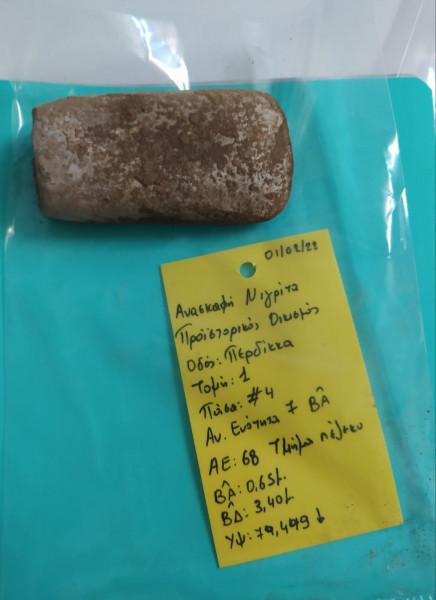 01/02/22
Ανασκαφή Νιγρίτα
Προϊστορικός Οικισμός
Οδός: Περδίκκα
Τομή: 1
Πάσα: #4
Αν. Ενότητα 7 ΒΑ̂
ΑΕ: 68 Τμήμα πέλεκυ
ΒΑ̂: 0,65μ.
ΒΔ̂: 3,40μ
ΥΨ: 74,479↓